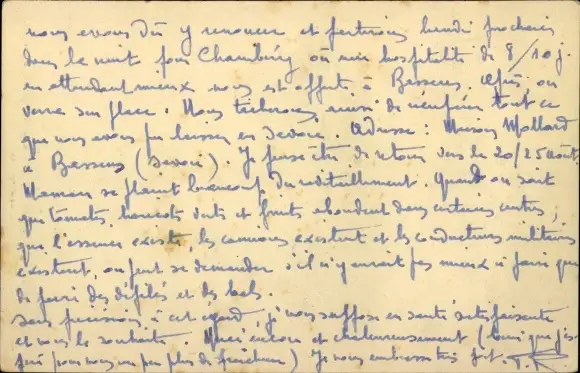 nous avons dû y renoncer et partirons lundi prochain
dans la nuit pour Chambéry où une hospitalité de 8/10 j.
en attendant mieux nous est offerte à Bassens. Après, on
verra sur place. Nous tâcherons aussi de récupérer tout ce
que nous avons pu laisser en Savoie. Adresse : Maison Mollard
à Bassens (Savoie). Je pense être de retour vers le 20/25 août.
Maman se plaint beaucoup du ravitaillement. Quand on sait
que tomates, haricots verts et fruits abondent dans certains centres,
que l'essence existe, les camions existent et les conducteurs militaires
existent, on peut se demander s'il n'y aurait pas mieux à faire que
de faire des défilés et des bals.
Sans précisions à cet égard, je vous suppose en santé satisfaisante
et vous le souhaite. Merci encore et chaleureusement (
pour nous un peu plus de fraîcheur) Je vous embrasse très fort.